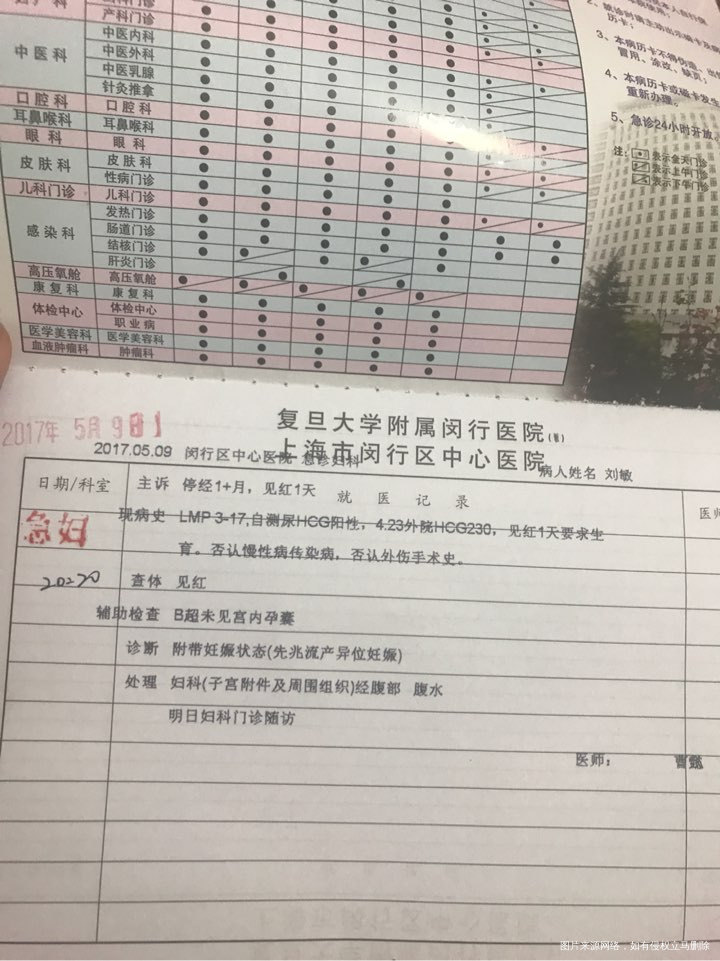 产科门诊
中医科
中医内科
中医外科
中医乳腺
针灸推拿
口腔科 口腔科
耳鼻喉科 耳鼻喉科
眼科 眼科
皮肤科 皮肤科
性病门诊
儿科门诊 儿科门诊
感染科
发热门诊
肠道门诊
结核门诊
肝炎门诊
高压氧舱 高压氧舱
康复科 康复科
体检中心 体检中心
职业病
医学美容科 医学美容科
血液肿瘤科 肿瘤科
3、本病历卡不得伪造、
冒用、涂改、缺页;
4、本病历卡或磁卡发生
重新办理。
5、急诊24小时开放。
注:
表示全天门诊
表示上午门诊
表示下午门诊
2017年 5月 9日
复旦大学附属闵行医院
2017.05.09 闵行区中心医院 急诊妇科
上海市闵行区中心医院
病人姓名 刘敏
日期/科室
主诉 停经1+月,见红1天
就医记录
医师
急妇
现病史 LMP 3-17,自测尿HCG阳性,4.23外院HCG230,见红1天要求生
育。否认慢性病传染病,否认外伤手术史。
查体 见红
辅助检查 B超未见宫内孕囊
诊断 附带妊娠状态(先兆流产异位妊娠)
处理 妇科(子宫附件及周围组织)经腹部 腹水
明日妇科门诊随访
医师: 曹懿
图片来源网络,如有侵权立马删除